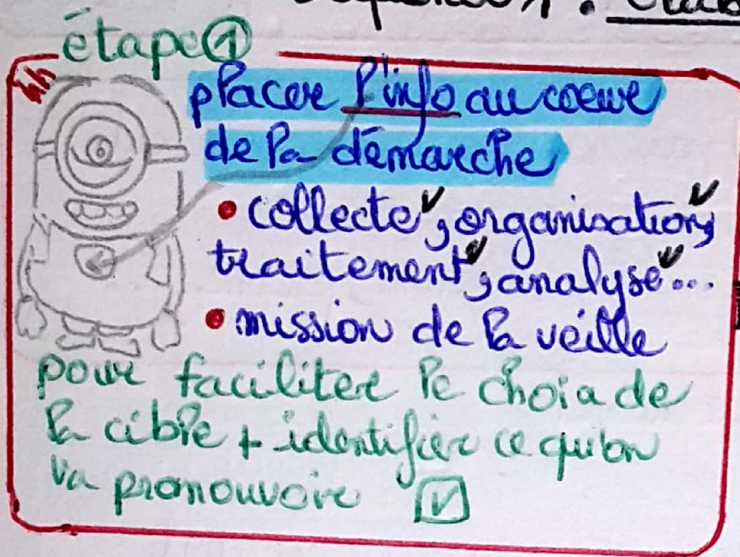 étape ①
placer l'info au coeur
de la démarche
• collecte, organisation,
traitement, analyse...
• mission de la veille
pour faciliter le choix de
la cible + identifier ce qu'on
va pronouvoir